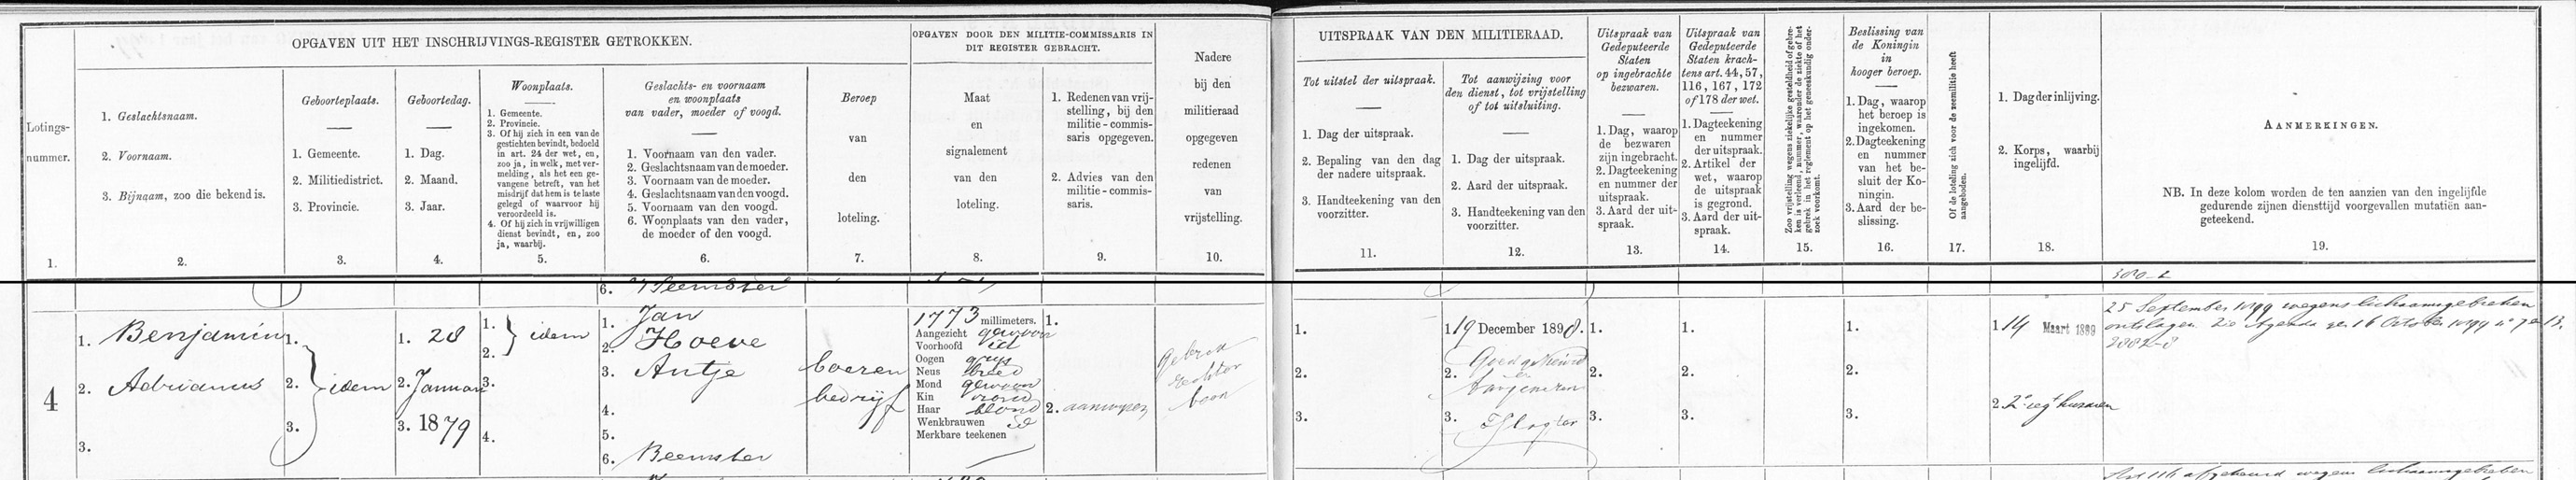 OPGAVEN UIT HET INSCHRIJVINGS-REGISTER GETROKKEN.
Lotings-
nummer.
1.
1. Geslachtsnaam.
2. Voornaam.
3. Bijnaam, zoo die bekend is.
2.
Geboorteplaats.
1. Gemeente.
2. Militiedistrict.
3. Provincie.
3.
Geboortedag.
1. Dag.
2. Maand.
3. Jaar.
4.
Woonplaats.
1. Gemeente.
2. Provincie.
3. Of hij zich in een van de
gestichten bevindt, bedoeld
in art. 24 der wet, en,
zoo ja, in welk, met ver-
melding, als het een ge-
vangene betreft, van het
misdrijf dat hem is te laste
gelegd of waarvoor hij
veroordeeld is.
4. Of hij zich in vrijwilligen
dienst bevindt, en, zoo
ja, waarbij.
5.
Geslachts- en voornaam
en woonplaats
van vader, moeder of voogd.
1. Voornaam van den vader.
2. Geslachtsnaam van de moeder.
3. Voornaam van de moeder.
4. Geslachtsnaam van den voogd.
5. Voornaam van den voogd.
6. Woonplaats van den vader,
de moeder of den voogd.
6.
Beroep
van
den
loteling.
7.
OPGAVEN DOOR DEN MILITIE-COMMISSARIS IN
DIT REGISTER GEBRACHT.
Maat
en
signalement
van den
loteling.
8.
1. Redenen van vrij-
stelling, bij den
militie-commis-
saris opgegeven.
2. Advies van den
militie-commis-
saris.
9.
Nadere
bij den
militieraad
opgegeven
redenen
van
vrijstelling.
10.
UITSPRAAK VAN DEN MILITIERAAD.
Tot uitstel der uitspraak.
1. Dag der uitspraak.
2. Bepaling van den dag
der nadere uitspraak.
3. Handteekening van den
voorzitter.
11.
Tot aanwijzing voor
den dienst, tot vrijstelling
of tot uitsluiting.
1. Dag der uitspraak.
2. Aard der uitspraak.
3. Handteekening van den
voorzitter.
12.
Uitspraak van
Gedeputeerde
Staten
op ingebrachte
bezwaren.
1. Dag, waarop
de bezwaren
zijn ingebracht.
2. Dagteekening
en nummer der
uitspraak.
3. Aard der uit-
spraak.
13.
Uitspraak van
Gedeputeerde
Staten krach-
tens art. 44, 57,
116, 167, 172
of 178 der wet.
1. Dagteekening
en nummer
der uitspraak.
2. Artikel der
wet, waarop
de uitspraak
is gegrond.
3. Aard der uit-
spraak.
14.
Zoo vrijstelling wegens ziekelijke gesteldheid of gebre-
ken is verleend, nummer, waaronder de ziekte of het
gebrek in het reglement op het geneeskundig onder-
zoek voorkomt.
15.
Beslissing van
de Koningin
in
hooger beroep.
1. Dag, waarop
het beroep is
ingekomen.
2. Dagteekening
en nummer
van het be-
sluit der Ko-
ningin.
3. Aard der be-
slissing.
16.
Of de loteling zich voor de zeemilitie heeft
aangeboden.
17.
1. Dag der inlijving.
2. Korps, waarbij
ingelijfd.
18.
AANMERKINGEN.
NB. In deze kolom worden de ten aanzien van den ingelijfde
gedurende zijnen diensttijd voorgevallen mutatiën aan-
geteekend.
19.
6. Beemster
4
1. Benjamin
2. Adrianus
3.
1.
2. idem
3.
1. 28
2. Januari
3. 1879
1. idem
2.
3.
4.
1. Jan
2. Hoeve
3. Antje
4.
5.
6. Beemster
boeren
bedrijf
1773 millimeters.
Aangezicht gewoon
Voorhoofd id
Oogen grijs
Neus breed
Mond gewoon
Kin rond
Haar blond
Wenkbrauwen id
Merkbare teekenen
1.
2. aanwijzen
gebrek
rechter
been
1.
2.
3.
1. 19 December 1898.
2. Goedgekeurd
3. Slogter
1.
2.
3.
1.
2.
3.
1.
2.
3.
1. 14 Maart 1899
2. 2e regt huzaren
25 September 1899 wegens lichaamsgebreken
ontslagen. Zie Agenda 16 October 1899